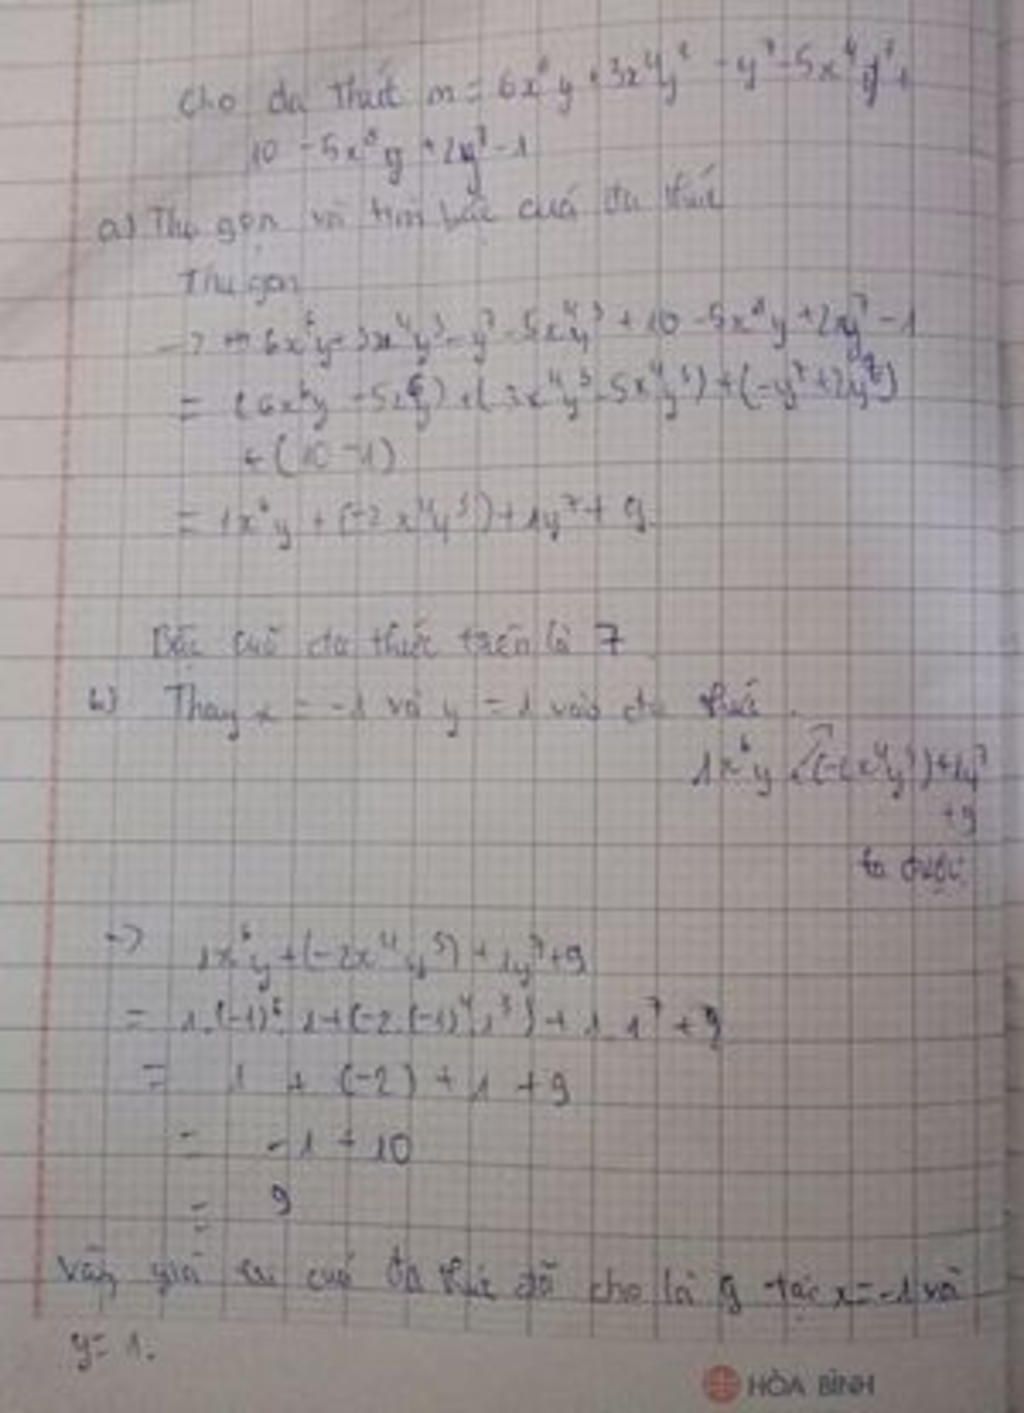 Cho đa thức m = 6x⁶y + 3x⁴y³ - y⁷ - 5x⁴y³ +
10 - 5x⁶y + 2y⁷ - 1
a) Thu gọn và tìm bậc của đa thức
Thu gọn
-> m = 6x⁶y + 3x⁴y³ - y⁷ - 5x⁴y³ + 10 - 5x⁶y + 2y⁷ - 1
= (6x⁶y - 5x⁶y) + (3x⁴y³ - 5x⁴y³) + (-y⁷ + 2y⁷)
+ (10 - 1)
= 1x⁶y + (-2x⁴y³) + 1y⁷ + 9
Bậc của đa thức trên là 7
b) Thay x = -1 và y = 1 vào đa thức
1x⁶y + (-2x⁴y³) + 1y⁷
+ 9
ta được
-> 1x⁶y + (-2x⁴y³) + 1y⁷ + 9
= 1.(-1)⁶.1 + (-2.(-1)⁴.1³) + 1.1⁷ + 9
= 1 + (-2) + 1 + 9
= -1 + 10
= 9
Vậy giá trị của đa thức đã cho là 9 tại x = -1 và
y = 1.
HÒA BÌNH